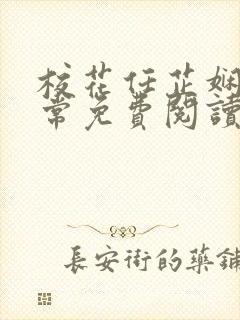 校花任芷嫻
常免費閱讀
長安街的藥鋪